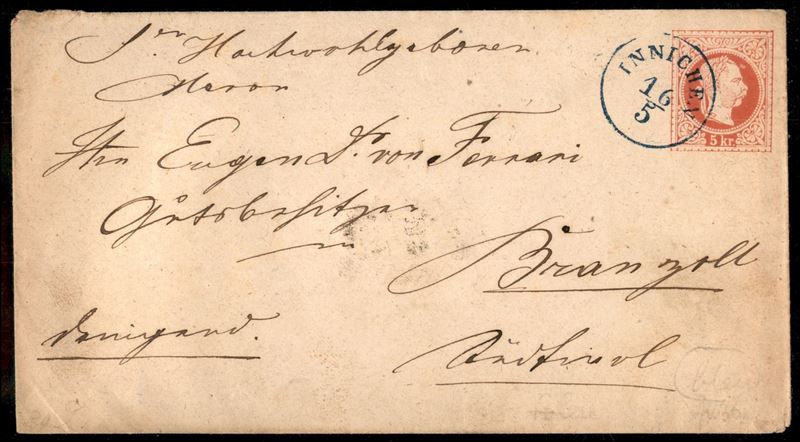 Sr Hochwohlgeboren
Herrn
Hrn Eugen Dr. von Ferrari
Gutsbesitzer
in
Branzoll
Südtirol
INNICHEN
16
5
5 kr.
bleu